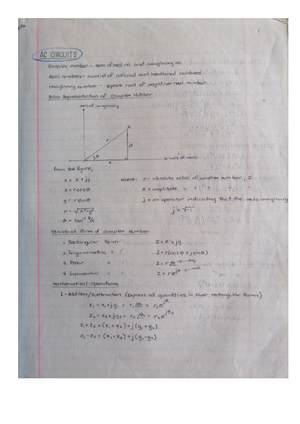 AC CIRCUITS
Complex number - sum of real no. and imaginary no.
Real numbers - consist of rational and irrational numbers
Imaginary number - square root of negative real number
Polar Representation of Complex Number
axis of imaginary
axis of reals
From the figure,
z = x + jy where: r - absolute value of complex number, z
x = r cos θ θ = amplitude
y = r sin θ j = an operator indicating that the no. is imaginary
r = √x²+y² j = √-1
θ = tan⁻¹ y/x
Standard Form of Complex Number
1. Rectangular Form z = x + jy
2. Trigonometric " z = r (cos θ + j sin θ)
3. Polar " z = r∠θ
4. Exponential " z = re^jθ
Mathematical Operations
1. Addition/Subtraction (Express all quantities in their rectangular forms)
z₁ = x₁ + jy₁ = r₁∠θ₁ = r₁e^jθ₁
z₂ = x₂ + jy₂ = r₂∠θ₂ = r₂e^jθ₂
z₁ + z₂ = (x₁ + x₂) + j (y₁ + y₂)
z₁ - z₂ = (x₁ - x₂) + j (y₁ - y₂)